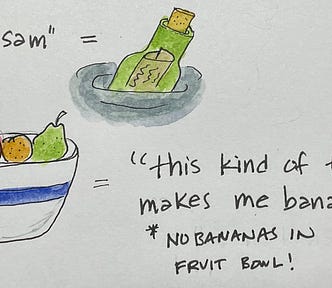 sam" =
= "this kind of t
makes me bana
* NO BANANAS IN
FRUIT BOWL!